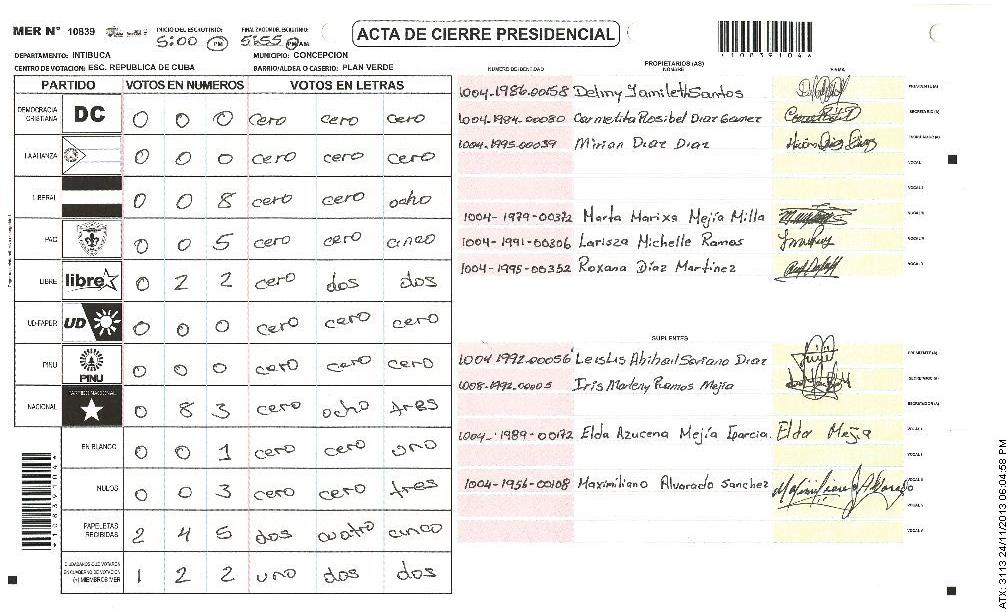 MER N° 10839 INICIO DEL ESCRUTINIO: 5:00 PM FINALIZACION DEL ESCRUTINIO: 5:55 PM AM
ACTA DE CIERRE PRESIDENCIAL
DEPARTAMENTO: INTIBUCA MUNICIPIO: CONCEPCION
CENTRO DE VOTACION: ESC. REPUBLICA DE CUBA BARRIO/ALDEA O CASERIO: PLAN VERDE
PARTIDO VOTOS EN NUMEROS VOTOS EN LETRAS
DEMOCRACIA CRISTIANA DC 0 0 0 cero cero cero
LA ALIANZA 0 0 0 cero cero cero
LIBERAL 0 0 8 cero cero ocho
PAC 0 0 5 cero cero cinco
LIBRE libre 0 2 2 cero dos dos
UD-FAPER UD 0 0 0 cero cero cero
PINU PINU 0 0 0 cero cero cero
NACIONAL PARTIDO NACIONAL 0 8 3 cero ocho tres
EN BLANCO 0 0 1 cero cero uno
NULOS 0 0 3 cero cero tres
PAPELETAS RECIBIDAS 2 4 5 dos cuatro cinco
CIUDADANOS QUE VOTARON EN CUADERNO DE VOTACION (+) MIEMBROS MER 1 2 2 uno dos dos
PROPIETARIOS (AS)
NUMERO DE IDENTIDAD NOMBRE FIRMA
1004-1986-00158 Delmy Yamileth Santos PRESIDENTE (A)
1004-1984-00080 Carmelita Rosibel Diaz Gamez SECRETARIO (A)
1004-1995-00039 Mirian Diaz Diaz ESCRUTADOR (A)
VOCAL I
VOCAL II
1004-1979-00372 Marta Marixa Mejía Milla VOCAL III
1004-1991-00306 Larissa Michelle Ramos VOCAL IV
1004-1995-00352 Roxana Díaz Martínez VOCAL V
SUPLENTES
1004-1992-00056 Abihail Soriano Diaz PRESIDENTE (A)
1008-1992-00005 Iris Marleny Ramos Mejía SECRETARIO (A)
ESCRUTADOR (A)
1004-1989-00172 Elda Azucena Mejía Elda Mejia VOCAL I
VOCAL II
1004-1956-00108 Maximiliano Alvarado Sanchez Maximiliano Alvarado VOCAL III
VOCAL IV
VOCAL V
*10839104*
*10839104*
ATX: 3113 24/11/2013 06:04:58 PM